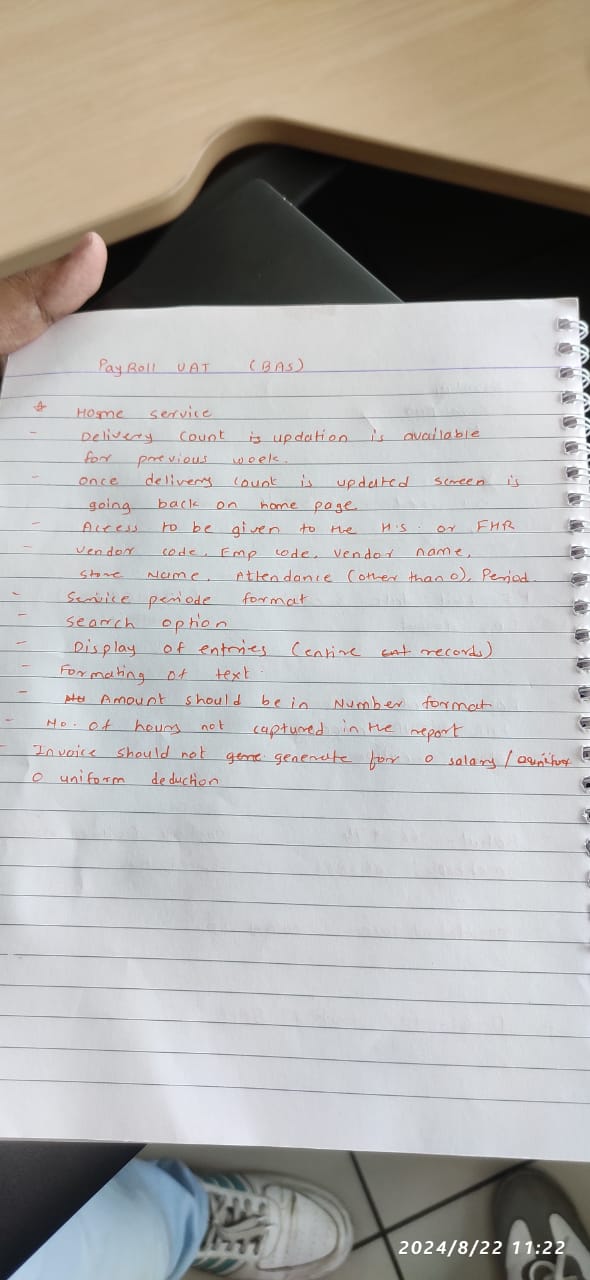 PayRoll UAT (BAS)
☆ Home service
- Delivery count is updation is available
for previous week.
- once delivery count is updated screen is
going back on home page
- Access to be given to the H.S. or FHR
- Vendor code, Emp code, Vendor name,
Store Name, Attendance (other than 0), Period
- Service periode format
- Search option
- Display of entries (entire records)
- Formating of text
- Amount should be in Number format
- No. of hours not captured in the report
- Invoice should not gene generate for 0 salary /
0 uniform deduction
2024/8/22 11:22